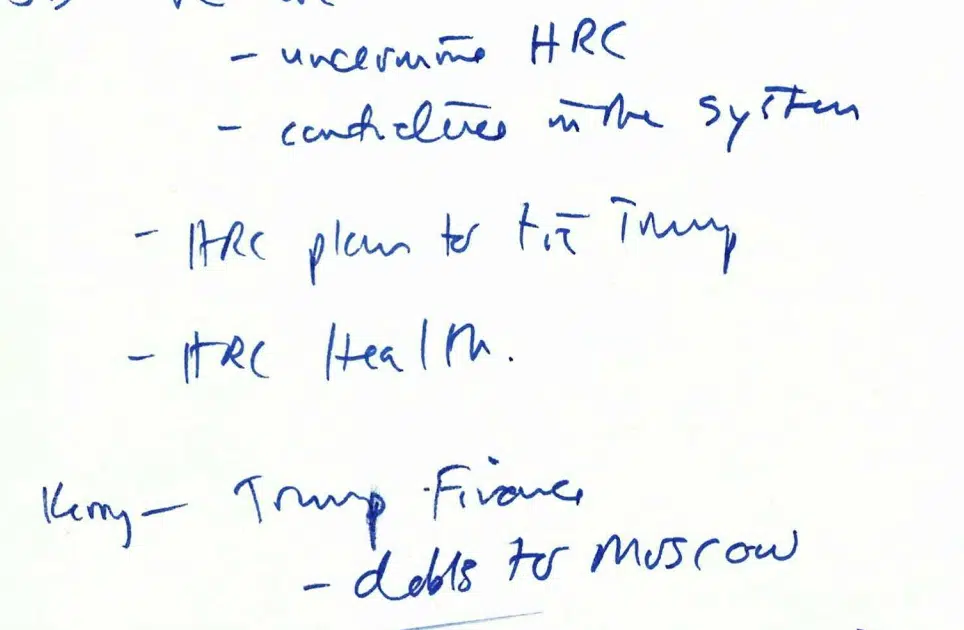 - undermine HRC
- candidates in the system
- HRC plan to tie Trump
- HRC Health.
Kerry - Trump Finances
- debts to Moscow